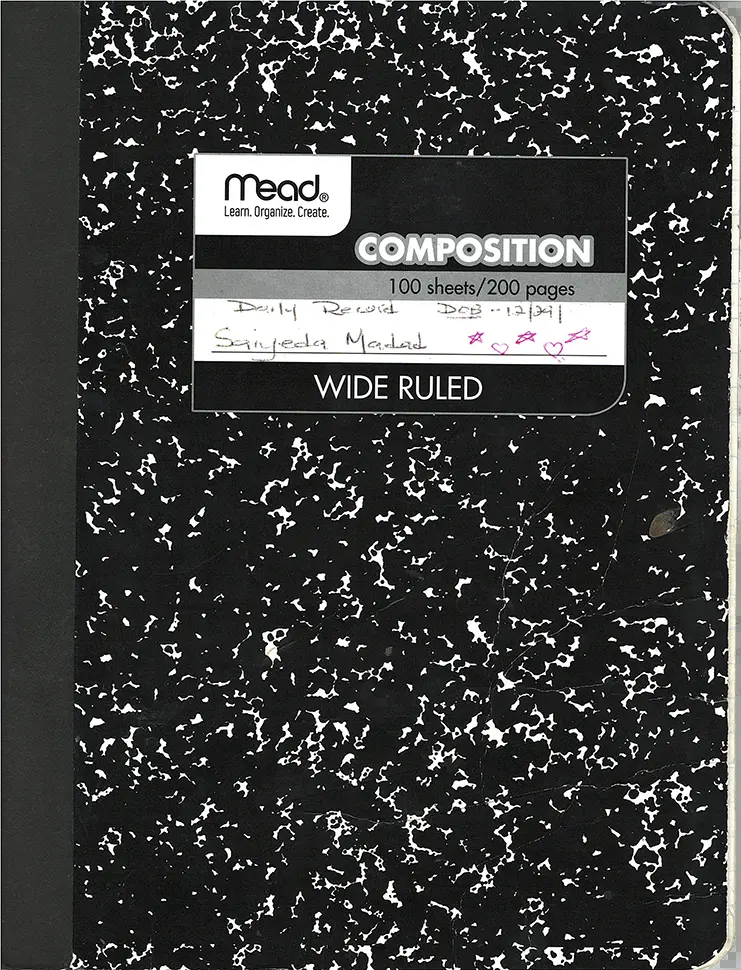 Mead®
Learn. Organize. Create.
COMPOSITION
100 sheets/200 pages
Daily Record DOB -- 12/29/
Saiyeda Madad
WIDE RULED